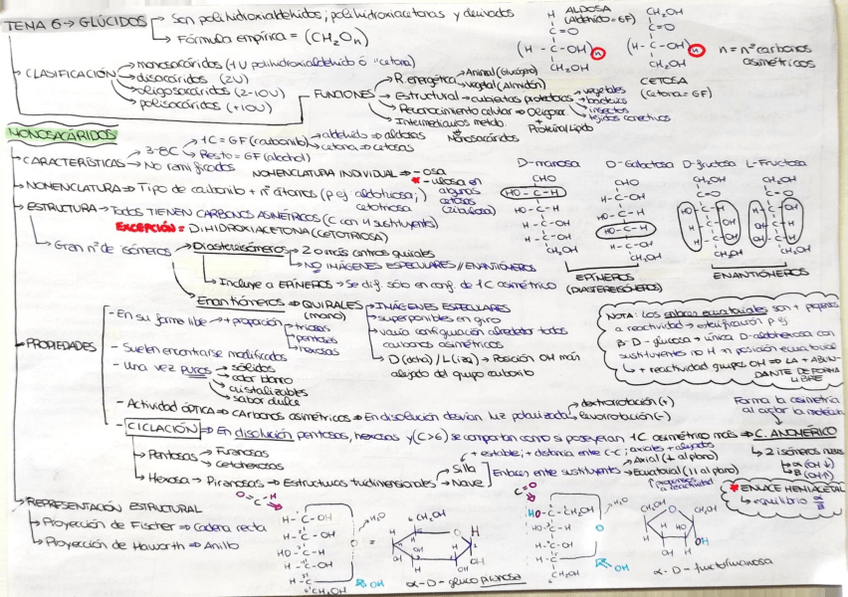 TEMA 6 → GLÚCIDOS
→ Son polihidroxialdehidos; polihidroxiacetonas y derivados
→ Fórmula empírica = (CH₂O)n
ALDOSA
(Aldehido = GF)
H
C=O
(H-C-OH)n
CH₂OH
CH₂OH
C=O
(H-C-OH)n
CH₂OH
CETOSA
(Cetona = GF)
n = nº carbonos
asimétricos
→ CLASIFICACIÓN
→ monosacáridos (1U polihidroxialdehido ó "cetona)
→ disacáridos (2U)
→ oligosacáridos (2-10U)
→ polisacáridos (+10U)
FUNCIONES
→ R. energética → Animal (Glucógeno)
→ Vegetal (Almidón)
→ Estructural → cubiertas protectoras
→ vegetales
→ bacterias
→ insectos
→ tejidos conectivos
→ Reconocimiento celular → Oligosac.
+
Proteína/Lípido
→ Intermediarios metab.
Monosacáridos
MONOSACÁRIDOS
→ CARACTERÍSTICAS
→ 3-8C
→ 1C = GF (carbonilo)
→ aldehido → aldosas
→ cetona → cetosas
→ Resto = GF (alcohol)
→ No ramificados
NOMENCLATURA INDIVIDUAL → -osa
* -ulosa en
algunas
cetosas
(ribulosa)
→ NOMENCLATURA → Tipo de carbonilo + nº átomos (p ej aldotriosa;)
cetotriosa
→ ESTRUCTURA → Todos TIENEN CARBONOS ASIMÉTRICOS (C con 4 sustituyentes)
EXCEPCIÓN = DIHIDROXIACETONA (CETOTRIOSA)
D-manosa
CHO
HO-C-H
HO-C-H
H-C-OH
H-C-OH
CH₂OH
D-Galactosa
CHO
H-C-OH
HO-C-H
HO-C-H
H-C-OH
CH₂OH
EPÍMEROS
(DIASTEREISÓMEROS)
D-fructosa
CH₂OH
C=O
HO-C-H
H-C-OH
H-C-OH
CH₂OH
L-Fructosa
CH₂OH
C=O
H-C-OH
HO-C-H
HO-C-H
CH₂OH
ENANTIÓMEROS
→ Gran nº de isómeros
→ Diastereisómeros → 2 o más centros quirales
→ NO IMÁGENES ESPECULARES // ENANTIÓMEROS
→ Incluye a EPÍMEROS → Se dif. sólo en conf. de 1C asimétrico
→ Enantiómeros → QUIRALES
(mano)
→ IMÁGENES ESPECULARES
→ superponibles en giro
→ varía configuración alrededor todos
carbonos asimétricos
→ D (dcha) / L (izq) → Posición OH más
alejado del grupo carbonilo
NOTA: Los enlaces ecuatoriales son + propensos
a reactividad → esterificación p ej
β-D-glucosa → única D-aldohexosa con
sustituyentes no H en posición ecuatorial
↳ + reactividad grupos OH → LA + ABUN-
DANTE DE FORMA
LIBRE
→ PROPIEDADES
- En su forma libre → + proporción
→ triosas
→ pentosas
→ hexosas
- Suelen encontrarse modificados
- Una vez puros
→ sólidos
→ color blanco
→ cristalizables
→ sabor dulce
- Actividad óptica → Carbonos asimétricos → En disolución desvían luz polarizada
→ dextrorrotación (+)
→ levorrotación (-)
- CICLACIÓN → En disolución pentosas, hexosas y (C>6) se comportan como si poseyeran 1C asimétrico más → C. ANOMÉRICO
Forma la asimetría
al ciclar la molécula
→ 2 isómeros nuevos
→ α (OH ↓)
→ β (OH ↑)
* ENLACE HEMIACETAL
→ equilibrio α/β
→ Pentosas
→ Furanosas
→ Cetohexosas
→ Hexosa → Piranosas → Estructuras tridimensionales
→ Silla
+ estable; + distancia entre C-C; axiales + alejados
→ Nave
Enlaces entre sustituyentes
→ Axial (⊥ al plano)
→ Ecuatorial (// al plano)
+ propensos
a reactividad
→ REPRESENTACIÓN ESTRUCTURAL
→ Proyección de Fischer → Cadena recta
→ Proyección de Haworth → Anillo
H-C-OH
H-C-OH
HO-C-H
H-C-OH
H-C
⁶CH₂OH
H₂O
OH
=
⁶CH₂OH
α-D-glucopiranosa
C=O
HO-C-CH₂OH
HO-C-H
H-C-OH
H-C
CH₂OH
H₂O
OH
CH₂OH
CH₂OH
α-D-fructofuranosa